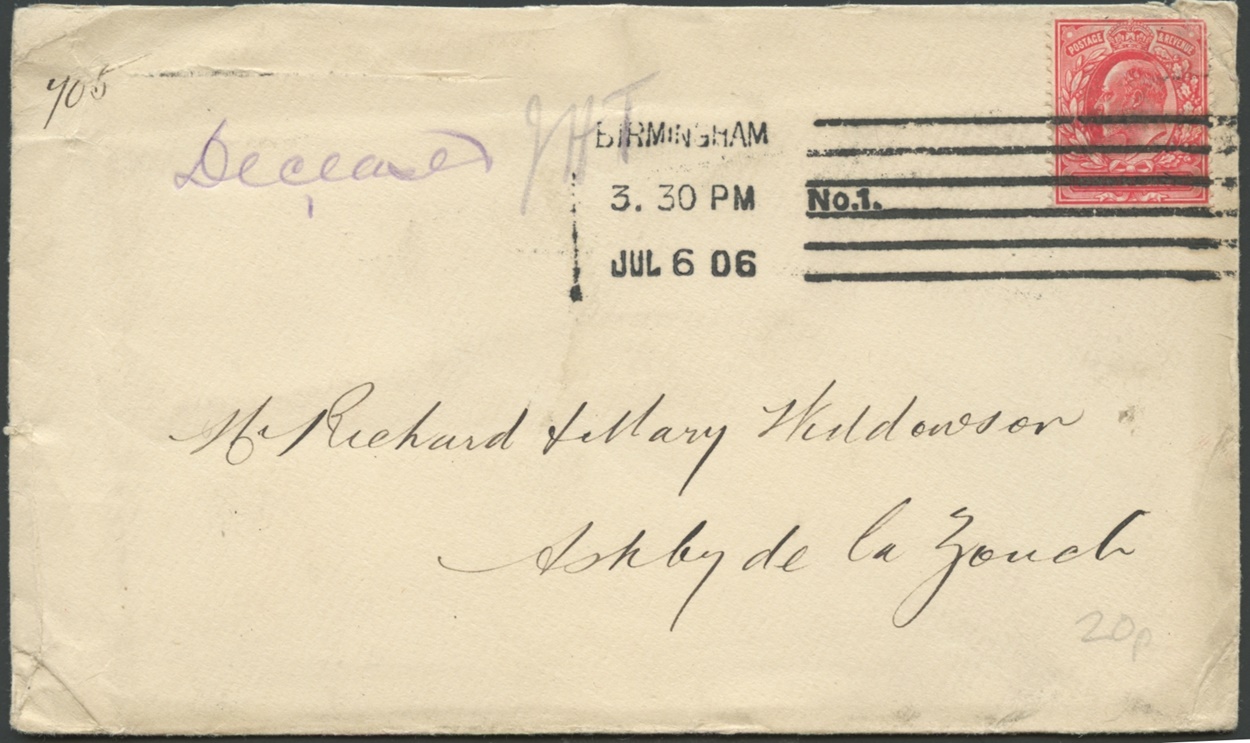 POSTAGE & REVENUE
705
Deceased JHT
BIRMINGHAM
3. 30 PM No.1.
JUL 6 06
Mr Richard & Mary Widdowson
Ashby de la Zouch
20p